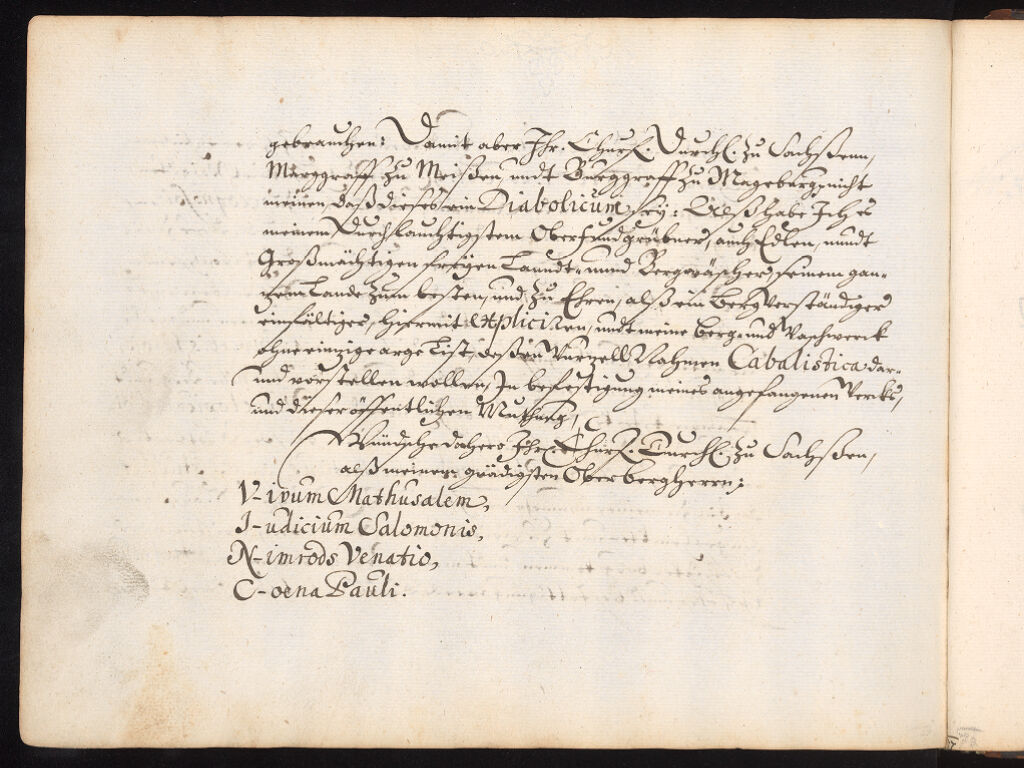 gebrauchen: Damit aber Ihr. Churf. Durchl. zu Sachßenn,
Marggraff zu Meißen, undt Burggraff zu Mageburg, nicht
meinen, daß dieses ein Diabolicum sey: Alß habe Ich es
meinem Durchlauchtigstem Oberfundgrübner, auch Edlen, unndt
Großmächtigen freyen Lanndt- unnd Bergwäscher, seinem gan-
zem Lande zum besten, und zu Ehren, alß ein bergverständiger
einfältiger, hiermit expliciren, undt meine berg- und Waschwerck
ohne einzige arge List, deßen Wurzell Nahmen Cabalistica dar-
und vorstellen wollen, In befestigung meines angefangenen Wercks,
und dieser öffentlichen Muthung,
Wündsche dahero Ihr. Churf. Durchl. zu Sachßen,
alß meinem gnädigsten Oberbergherrn;
V-ivum Mathusalem,
I-udicium Salomonis,
N-imrods Venatio,
C-oena Pauli.